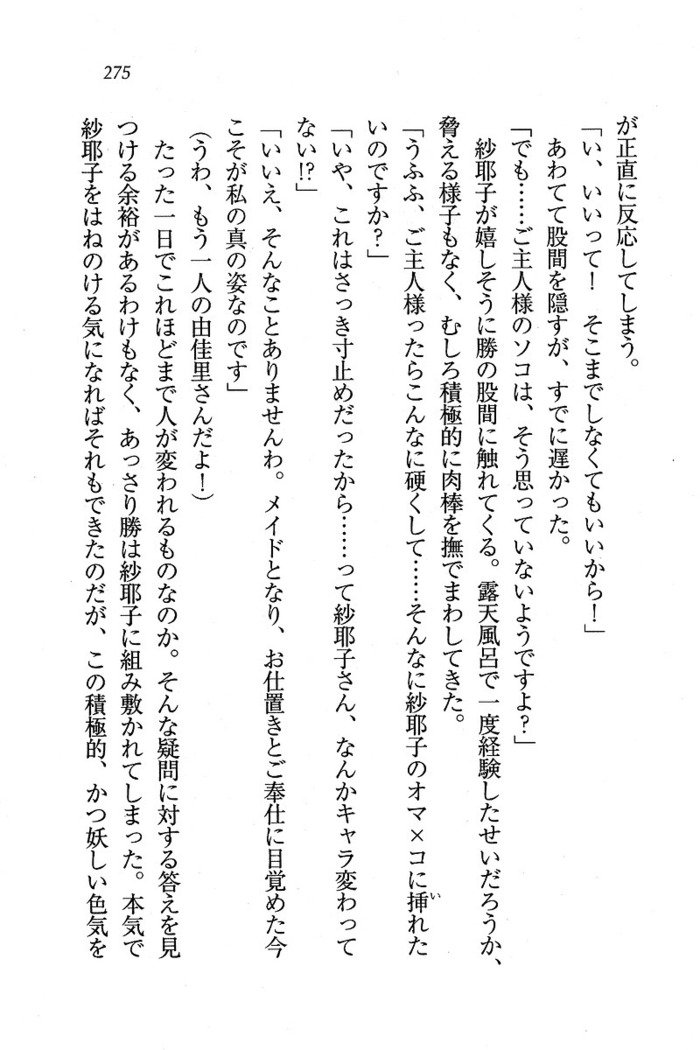 275
が正直に反応してしまう。
「い、いいって！　そこまでしなくてもいいから！」
　あわてて股間を隠すが、すでに遅かった。
「でも……ご主人様のソコは、そう思っていないようですよ？」
　紗耶子が嬉しそうに勝の股間に触れてくる。露天風呂で一度経験したせいだろうか、
脅える様子もなく、むしろ積極的に肉棒を撫でまわしてきた。
「うふふ、ご主人様ったらこんなに硬くして……そんなに紗耶子のオマ×コに挿れた
いのですか？」
「いや、これはさっき寸止めだったから……って紗耶子さん、なんかキャラ変わって
ない!?」
「いいえ、そんなことありませんわ。メイドとなり、お仕置きとご奉仕に目覚めた今
こそが私の真の姿なのです」
（うわ、もう一人の由佳里さんだよ！）
　たった一日でこれほどまで人が変われるものなのか。そんな疑問に対する答えを見
つける余裕があるわけもなく、あっさり勝は紗耶子に組み敷かれてしまった。本気で
紗耶子をはねのける気になればそれもできたのだが、この積極的、かつ妖しい色気を